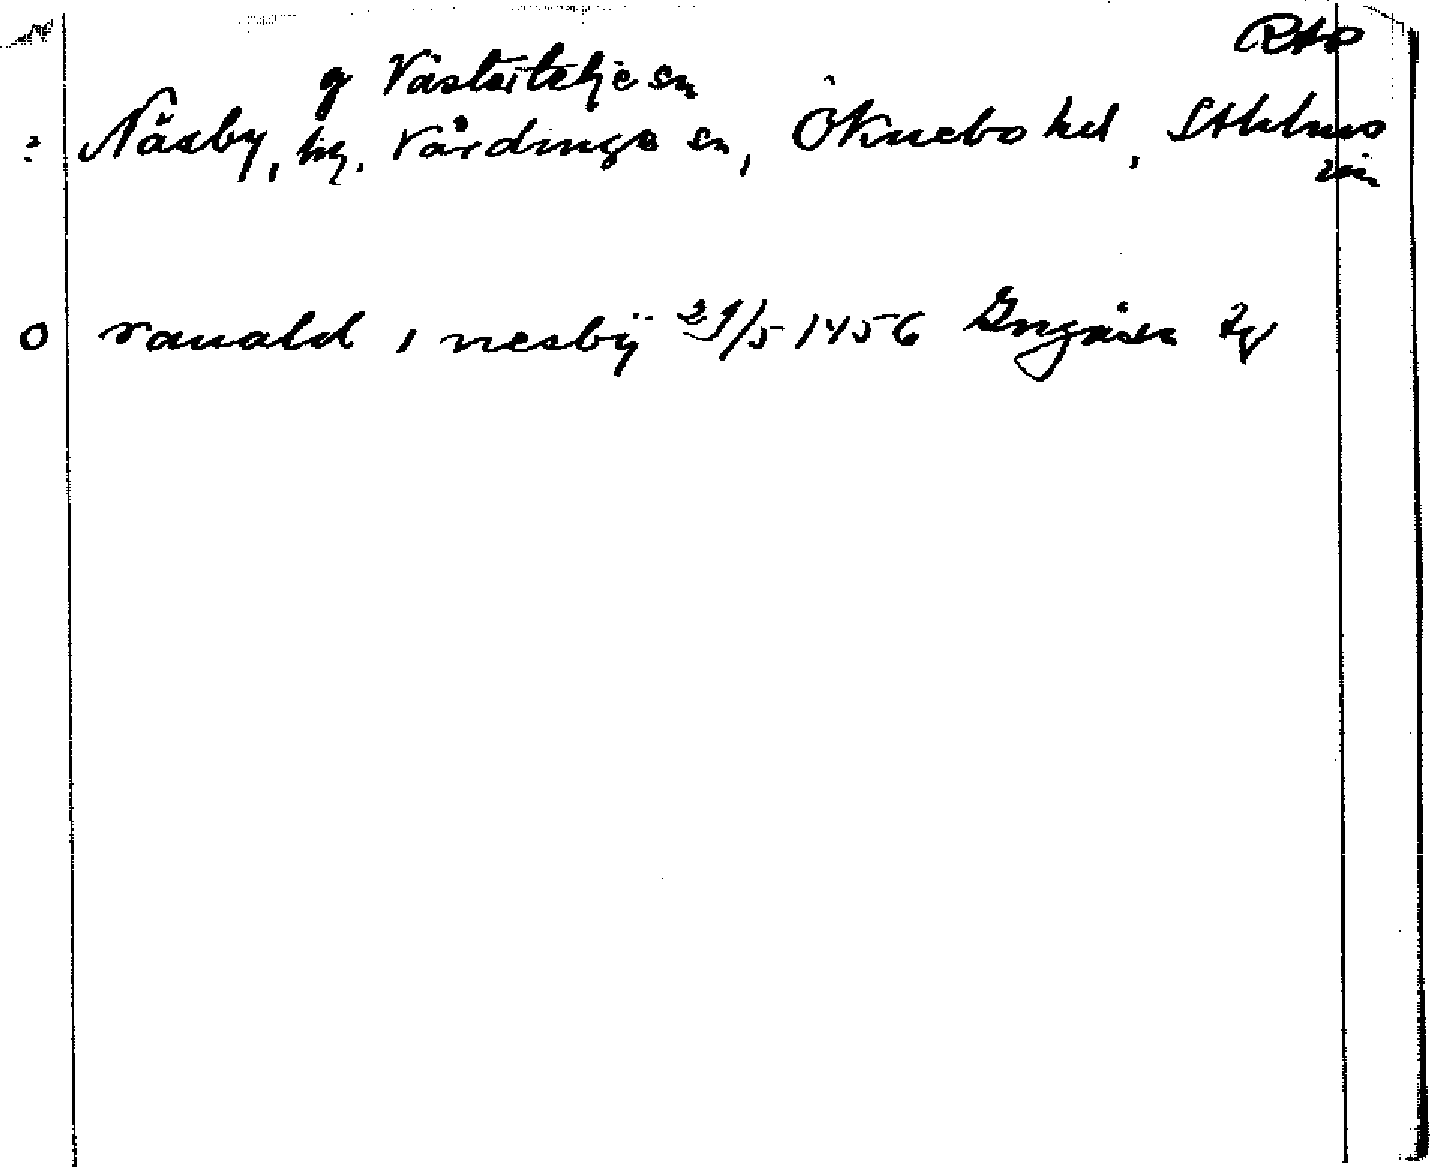 RAO
g Västertelje sn
: Näsby, by, Vårdinge sn, Öknebo hd, Sthlms
län
O ranald i nesbÿ 29/5 1456